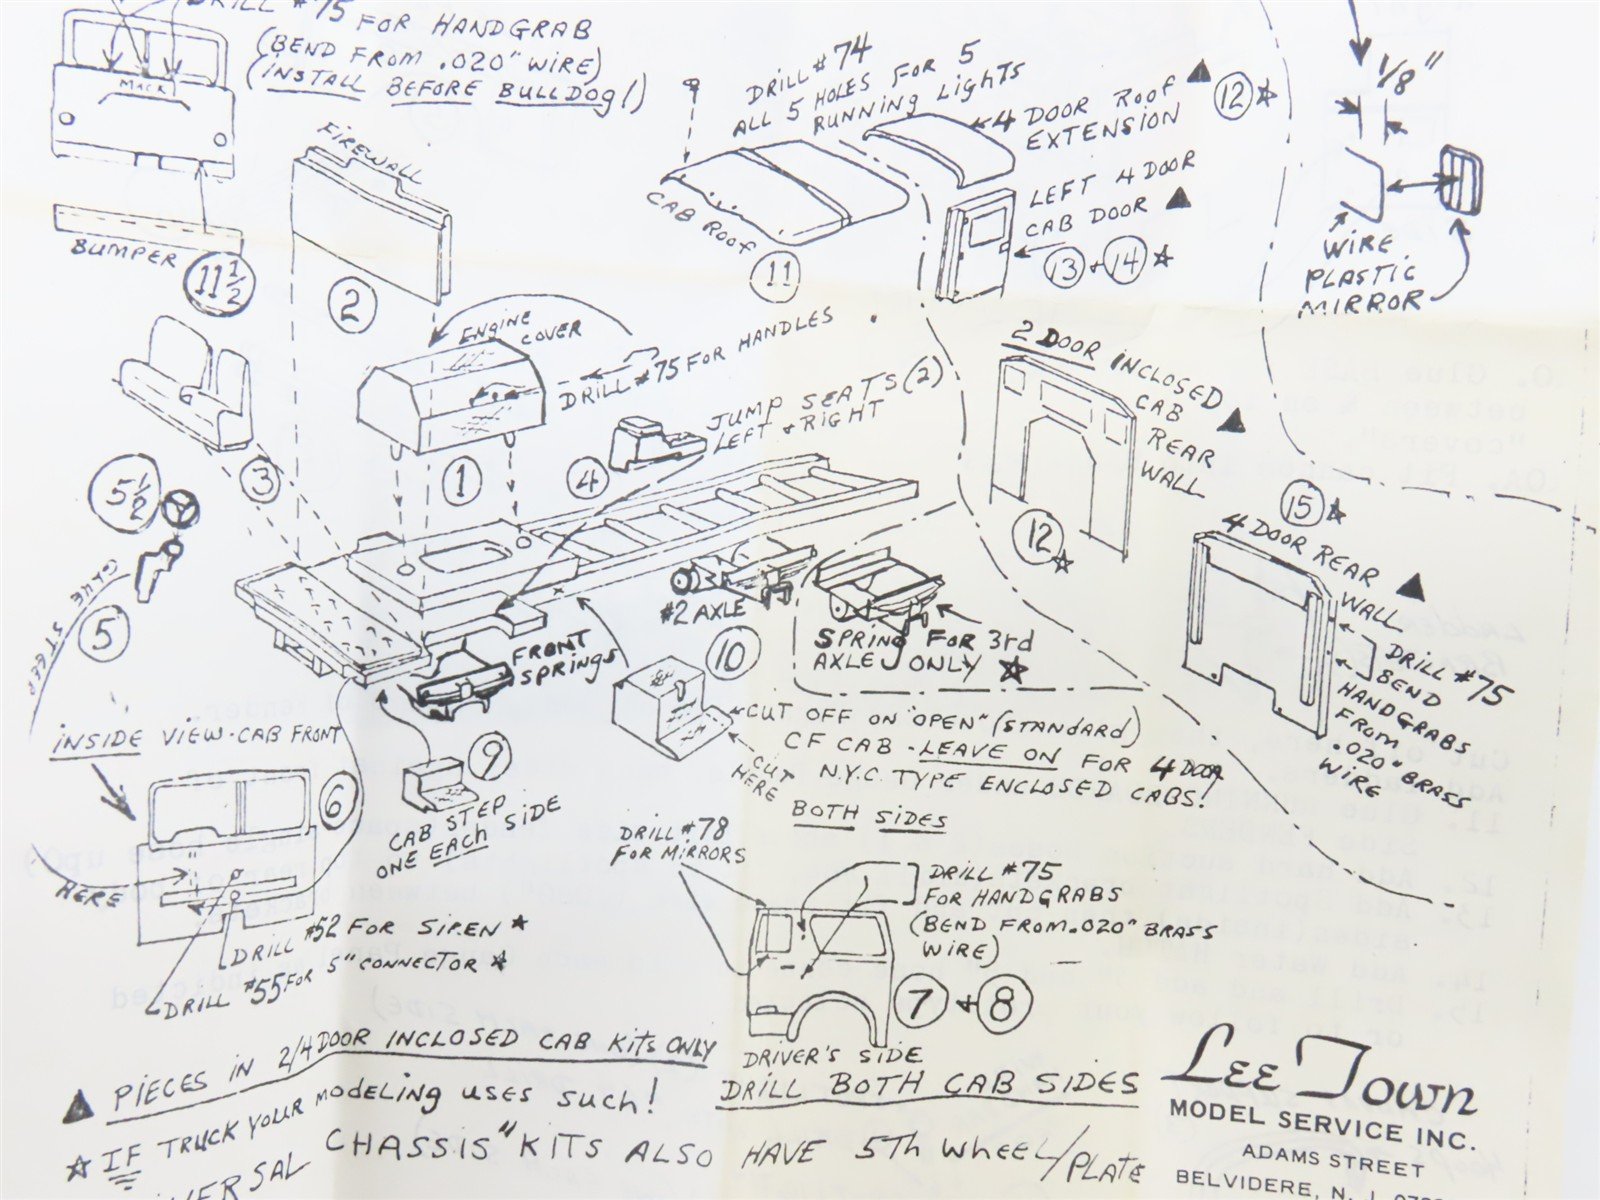 DRILL #75 FOR HANDGRAB
(BEND FROM .020" WIRE)
(INSTALL BEFORE BULLDOG!)
MACK
BUMPER
11 1/2
FIREWALL
2
DRILL #74
ALL 5 HOLES FOR 5
RUNNING LIGHTS
CAB ROOF
11
4 DOOR ROOF ▲
EXTENSION
12 ☆
LEFT 4 DOOR
CAB DOOR ▲
13 + 14 ☆
1/8"
WIRE
PLASTIC
MIRROR
ENGINE
COVER
DRILL #75 FOR HANDLES
1
3
JUMP SEATS (2)
LEFT + RIGHT
4
2 DOOR INCLOSED
CAB ▲
REAR
WALL
12 ☆
15 ☆
4 DOOR REAR ▲
WALL
DRILL #75
BEND
HANDGRABS
FROM
.020" BRASS
WIRE
5 1/2
GLUE STEER
5
#2 AXLE
SPRING FOR 3rd
AXLE ONLY ☆
FRONT
SPRINGS
10
CUT OFF ON "OPEN" (STANDARD)
CF CAB - LEAVE ON FOR 4 DOOR
N.Y.C. TYPE ENCLOSED CABS!
BOTH SIDES
CUT
HERE
9
CAB STEP
ONE EACH SIDE
INSIDE VIEW - CAB FRONT
6
HERE
DRILL #52 FOR SIREN ★
DRILL #55 FOR 5" CONNECTOR ★
DRILL #78
FOR MIRRORS
DRILL #75
FOR HANDGRABS
(BEND FROM .020" BRASS
WIRE)
7 + 8
DRIVER'S SIDE
DRILL BOTH CAB SIDES
▲ PIECES IN 2/4 DOOR INCLOSED CAB KITS ONLY
☆ IF TRUCK YOUR MODELING USES SUCH!
CHASSIS" KITS ALSO HAVE 5TH WHEEL/PLATE
LEE TOWN
MODEL SERVICE INC.
ADAMS STREET
BELVIDERE, N. J.